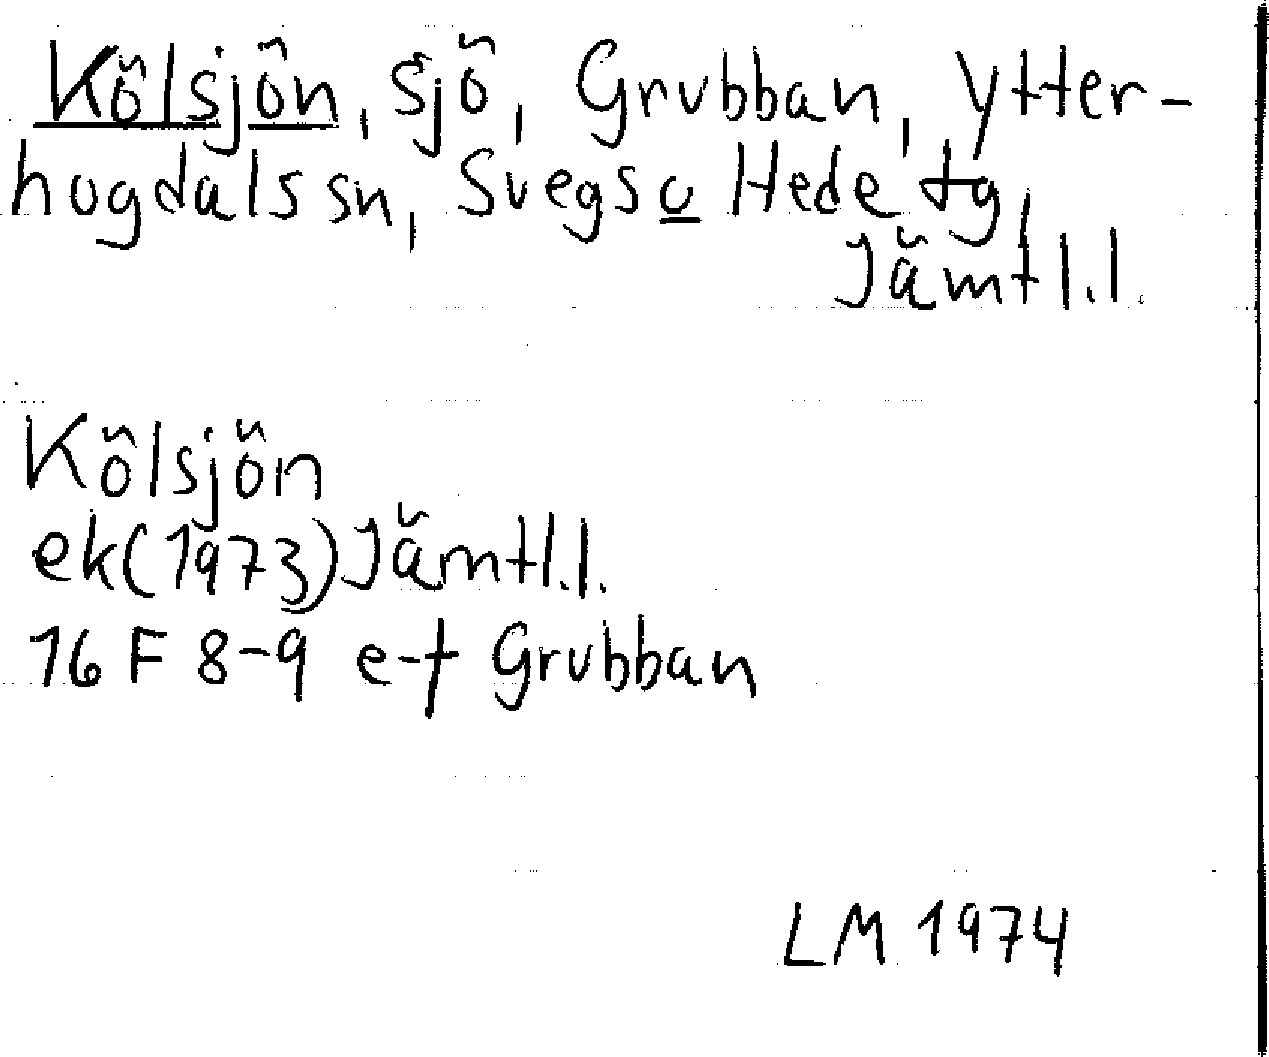 Kölsjön, sjö, Grubban, Ytter-
hogdals sn, Svegs o Hede tg,
Jämtl.l.
Kölsjön
ek(1973)Jämtl.l.
16 F 8-9 e-f Grubban
LM 1974